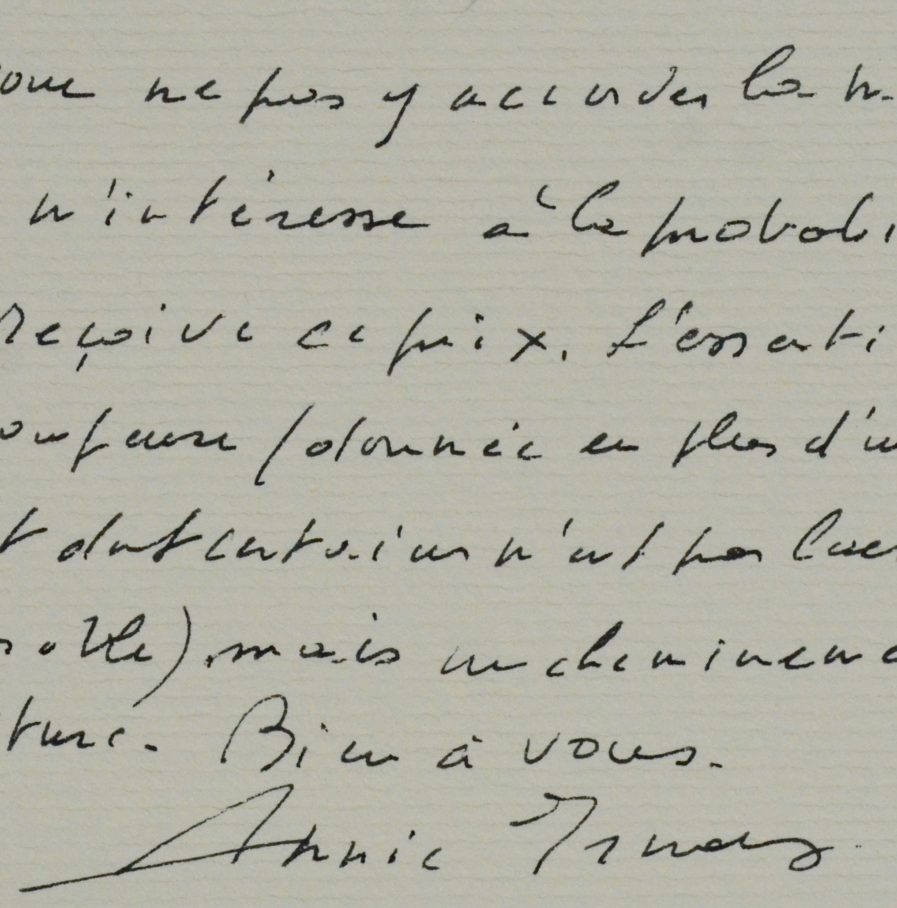 pour ne pas y accorder la m
m'intéresse à la probabi
reçoive ce prix. L'essenti
(donnée en plus d'u
t dont certains n'ont pas
), mais un chemineme
ture. Bien à vous.
Annie Ernaux